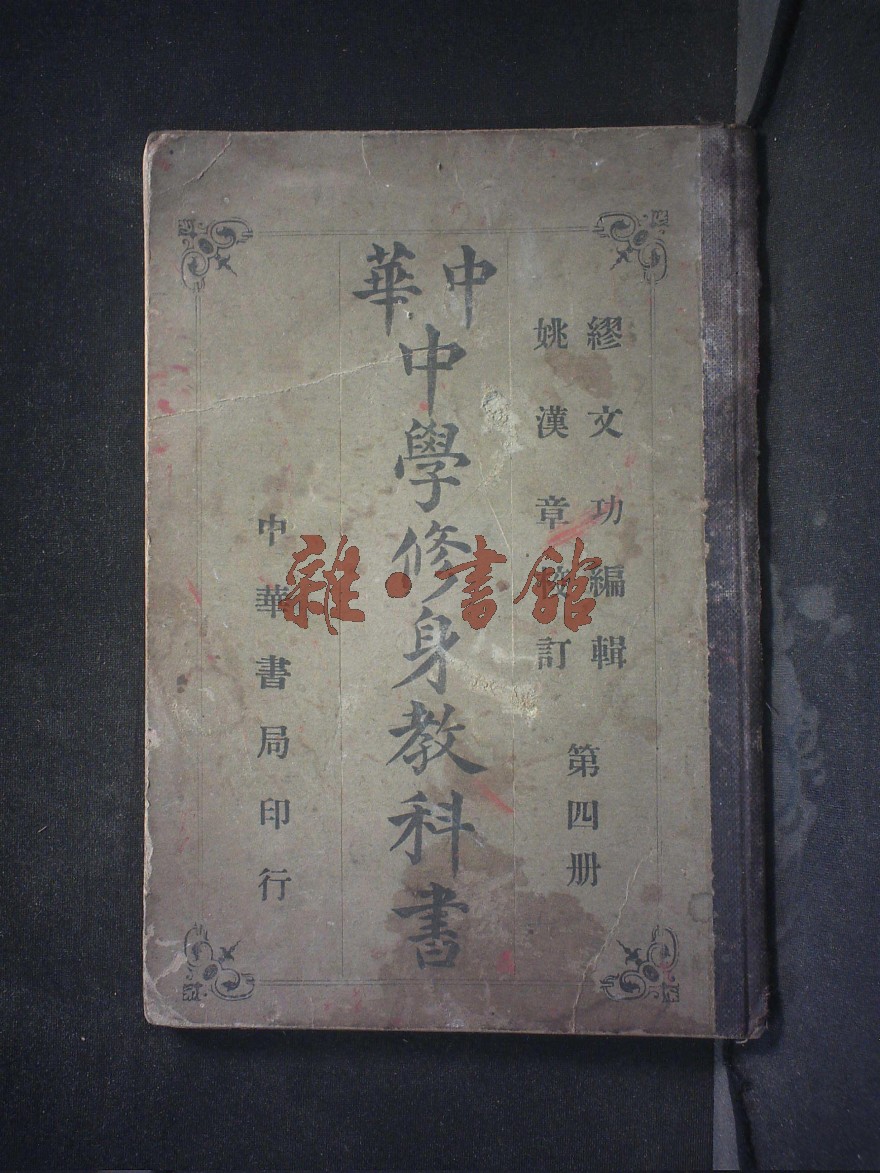 繆文功編輯
姚漢章校訂
第四册
中華
中學修身教科書
中華書局印行
雜·書館